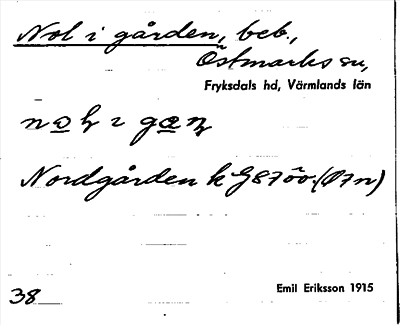 Nol i gården, beb.,
Östmarks sn,
Fryksdals hd, Värmlands län
Nordgården k G8700. (Ø7n)
38
Emil Eriksson 1915